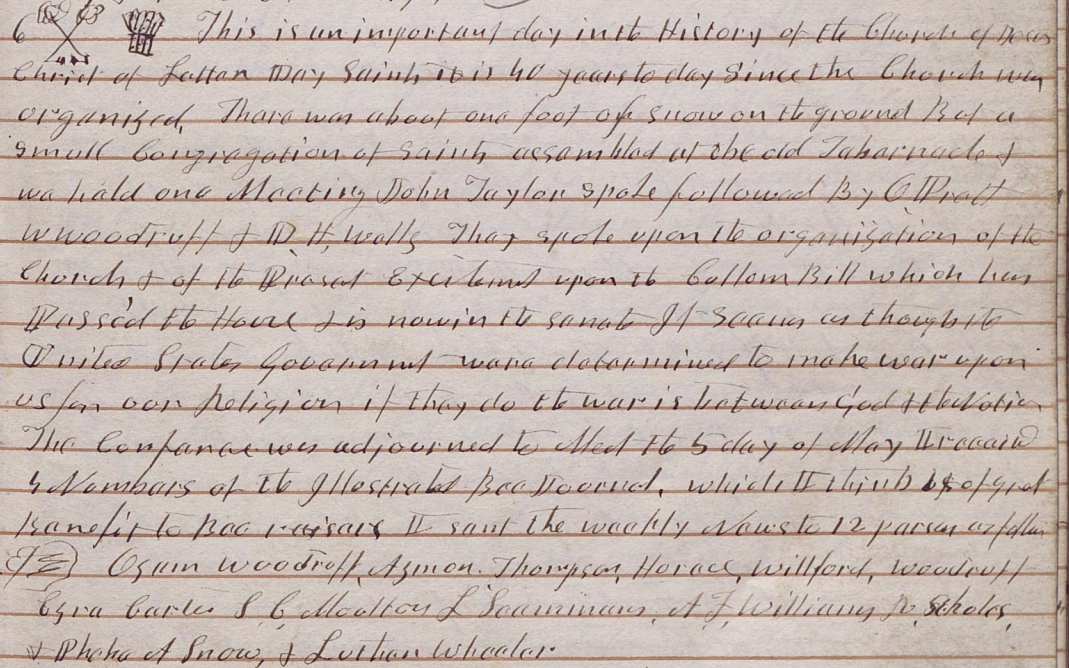 6 This is an important day in the History of the Church of Jesus
Christ of Latter Day Saints it is 40 years to day Since the Church was
organized, There was about one foot of snow on the ground But a
small Congregation of Saints assembled at the old Tabernacle &
we held one Meeting John Taylor spoke followed By O Pratt
W Woodruff & D. H. Wells They spoke upon the organization of the
Church & of the Presat Exitement upon the Cullom Bill which has
Passe'd the House & is now in the Senate It Seems as though the
United States Goverment were determined to make war upon
us for our Religion if they do the war is between God & the Nation
The Confernce was adjourned to Meet the 5 day of May I receivd
4 Numbers of the Illustrated Bee Journal, which I think is of grat
Benefit to Bee raisers I sent the weekly News to 12 person as follows
Ozem Woodruff, Azmon. Thompson, Horace, Willford, Woodruff
Ezra Carter S. C. Moulton L Scammans, A. F. Williams Scholes,
& Phebe A Snow, & Luther Wheeler